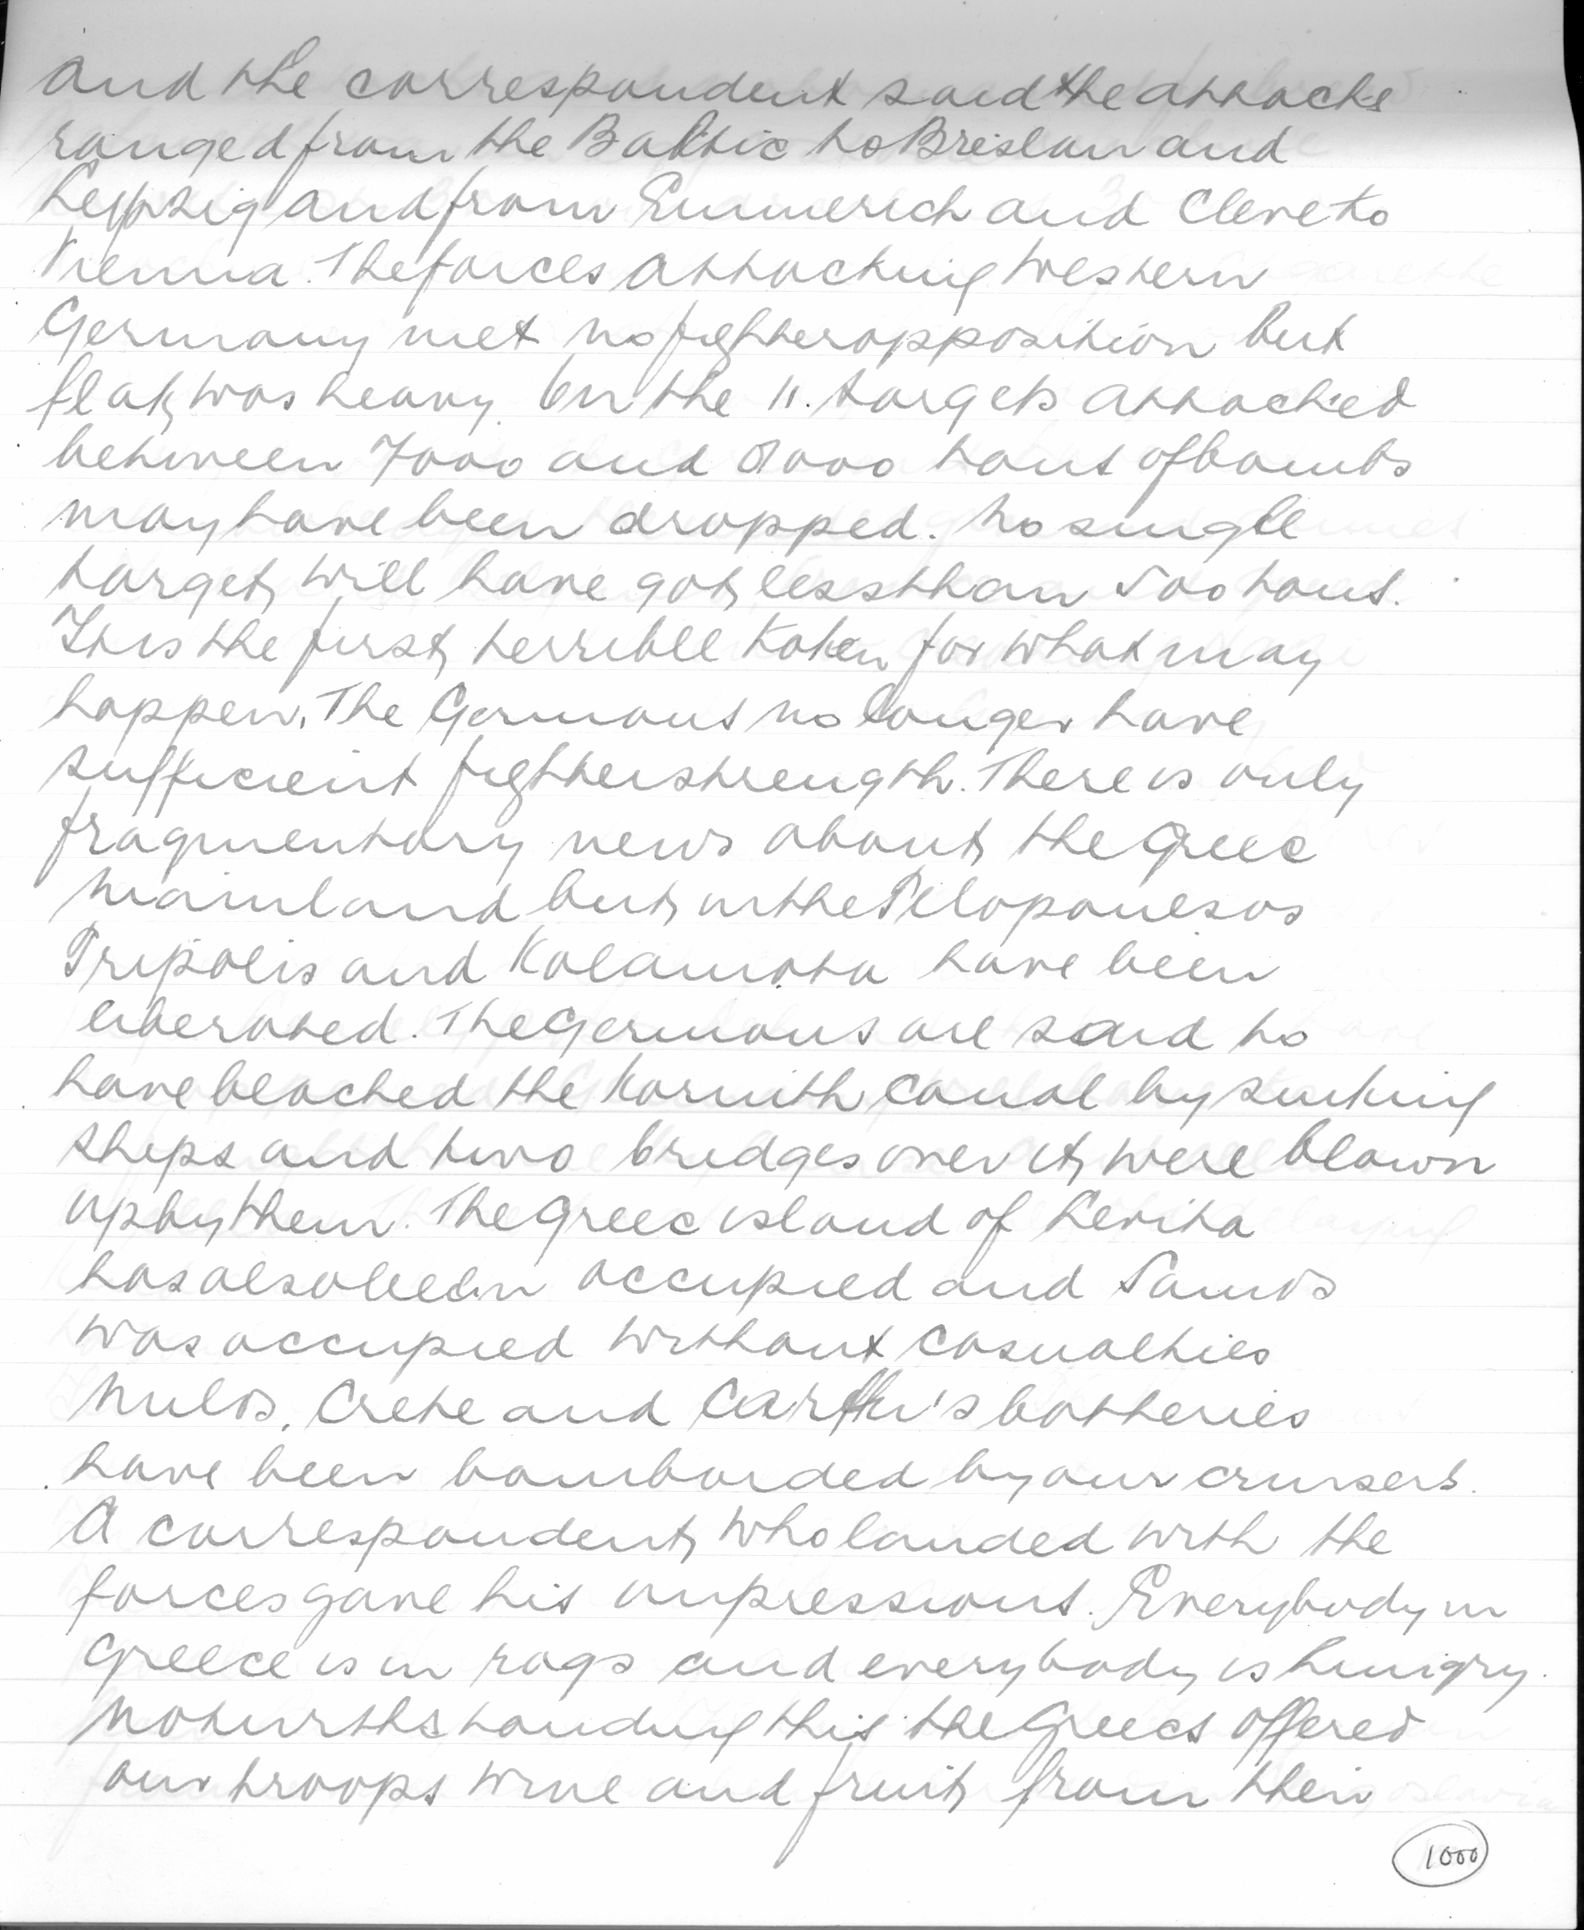 and the correspondent said the attacks
ranged from the Baltic to Breslau and
Leipzig and from Emmerich and Cleve to
Vienna. The forces attacking Western
Germany met no fighteropposition but
flak was heavy. On the 11. targets attacked
between 7000 and 8000 tons of bombs
may have been dropped. No single
target will have got less than 500 tons.
It is the first terrible token for what may
happen. The Germans no longer have
sufficient fighterstrength. There is only
fragmentary news about the Greec
mainland but on the Peloponesos
Tripolis and Kalamata have been
liberated. The Germans are said to
have blocked the Korinth canal by sinking
ships and two bridges over it were blown
up by them. The Greec island of Levita
has also been occupied and Samos
was occupied without casualties
Milos, Crete and Corfu's batteries
have been bombarded by our cruisers.
A correspondent who landed with the
forces gave his impressions. Everybody in
Greece is in rags and everybody is hungry.
Notwithstanding this the Greecs offered
our troops wine and fruit from their
1000